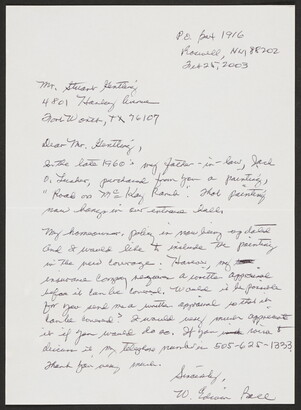 P.O. Box 1916
Roswell, NM 88202
Feb 25, 2003
Mr. Stuart Gentling
4801 Avenue
Fort Worth, TX 76107
Dear Mr. Gentling,
In the late 1960's my father-in-law, Jack
O. purchased from you a painting,
"Road on McKay Ranch." That painting
now hangs in our entrance hall.
My homeowners policy is now being updated
and I would like to include the painting
in the new coverage. However, my
insurance company requires a written appraisal
before it can be covered. Would it be possible
for you send me a written appraisal so that it
can be covered? I would very much appreciate
it if you would do so. If you wish to
discuss it my telephone number is 505-625-1333.
Thank you very much.
Sincerely,
W. Edwin